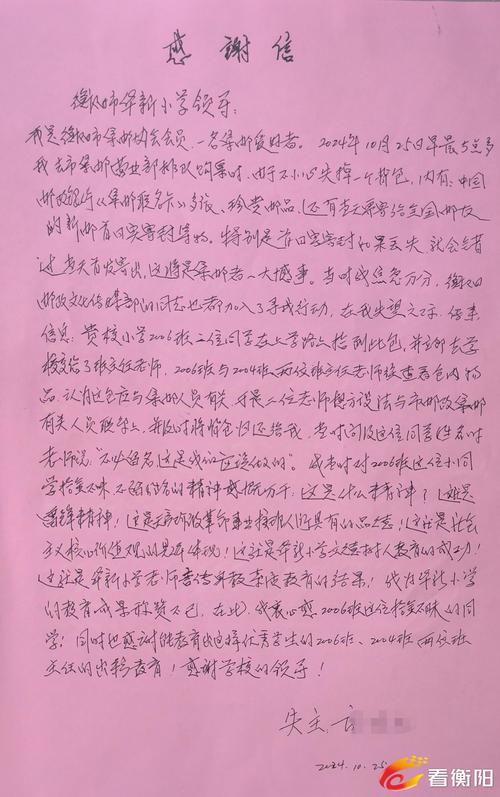 感謝信
衡阳市华新小学领导:
我是衡阳市集邮协会会员,一名集邮爱好者。2024年10月25日早晨5点多
我去市集邮营业部排队购票时,由于不小心失掉一个背包,内有:中国
邮政发行《集邮联名卡》多张、珍贵邮品,还有当天要寄给全国邮友
的新邮首日实寄封等物。特别是首日实寄封如果丢失,就会错
过当天首发寄出,这将是集邮者一大憾事。当时我焦急万分,衡阳
邮政文化传媒部的同志也都加入了寻找行动,在我失望之际,传来
信息:贵校小学2006班二位同学在上学路上捡到此包,并立即去学
校交给了班主任老师,2006班与2004班两位班主任老师经查看包内物
品,认为这包应与集邮人员有关,于是二位老师想方设法与市邮政集邮
有关人员联系上,并及时将背包归还给我,当时问及这位同学姓名时
老师说:"不必留名,这是我们应该做的"。我当时对2006班这位小同
学拾金不昧,不留姓名的精神感慨万千:这是什么精神?这就是
雷锋精神!这是无产阶级革命事业接班人所具有的品德!这就是社会
主义核心价值观的具体体现!这就是华新小学立德树人教育的成功!
这就是华新小学老师言传身教素质教育的结果!我为华新小学
的教育成果称赞不已,在此,我衷心感2006班这位拾金不昧的同
学!同时也感谢能教育出这样优秀学生的2006班、2004班两位班
主任的出色教育!感谢学校的领导!
失主:
2024.10.25
看衡阳